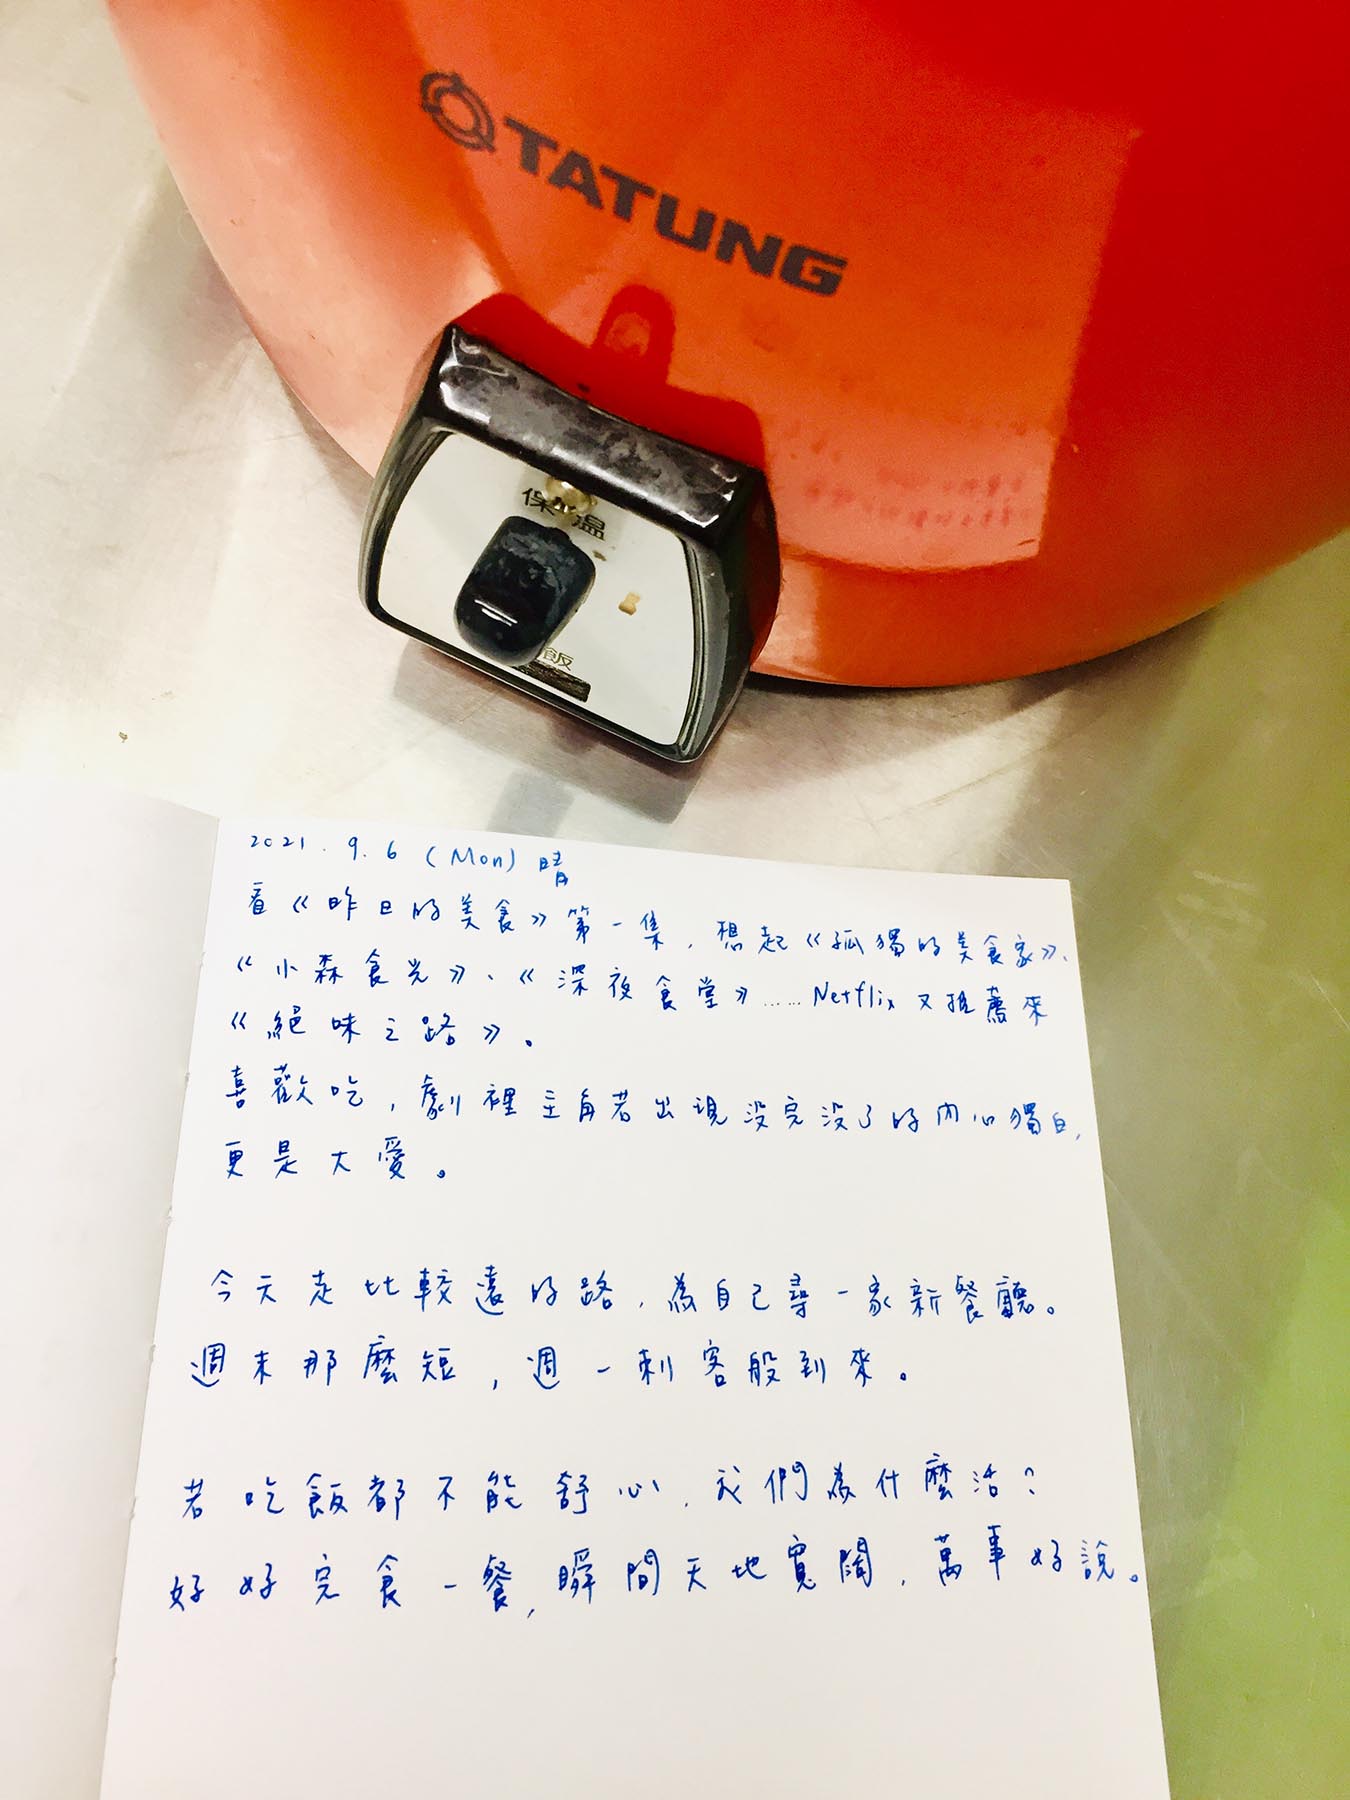 TATUNG
保溫
飯
2021.9.6 (Mon) 晴
看《昨日的美食》第一集，想起《孤獨的美食家》、
《小森食光》、《深夜食堂》……Netflix又推薦來
《絕味之路》。
喜歡吃，劇裡主角若出現沒完沒了的內心獨白，
更是大愛。
今天走比較遠的路，為自己尋一家新餐廳。
週末那麼短，週一刺客般到來。
若吃飯都不能舒心，我們為什麼活？
好好完食一餐，瞬間天地寬闊，萬事好說。